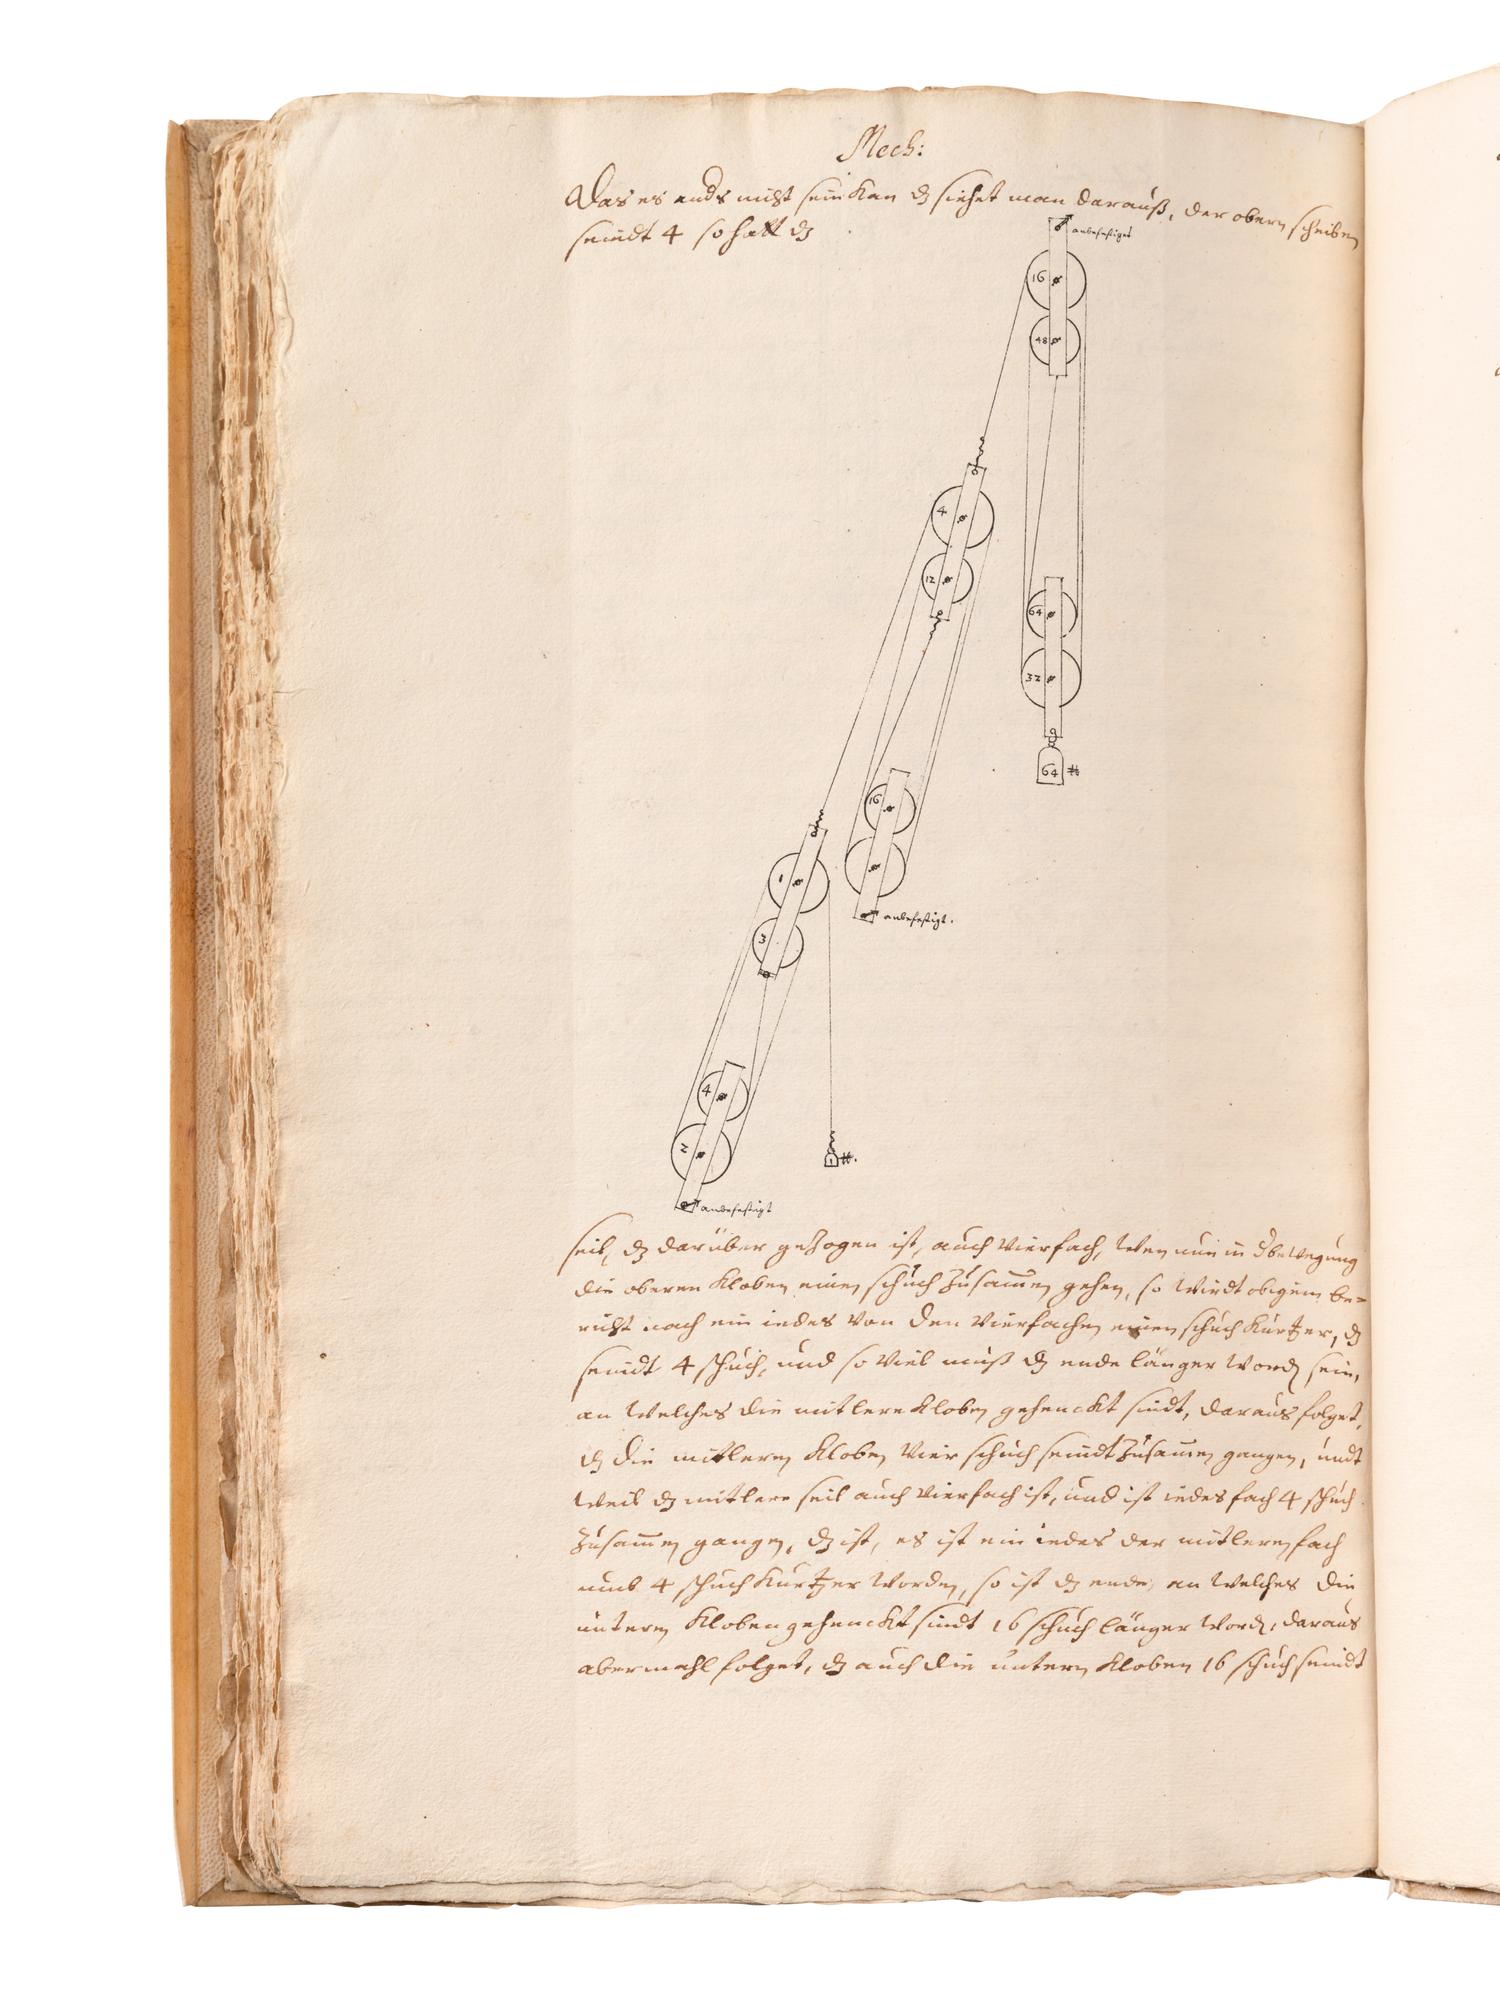 Mech:
Das es anders nicht sein kan dz siehet man darauß, der obern scheiben
seindt 4 so hatt dz
anbefestiget
16
48
4
12
64
32
64 ℔
16
anbefestigt.
1
3
4
2
1 ℔.
anbefestigt
seil, dz darüber gezogen ist, auch vierfach, wen nun in d bewegung
die oberen kloben einen schuch zusam̅en gehen, so wirdt obigem be=
richt nach ein iedes von den vierfachen einen schuch kürtzer, dz
seindt 4 schuch, und so viel muß dz ende länger word sein,
an welches die mitlere kloben gehenckt sindt, daraus folget,
dz die mitlern kloben vier schuch seindt zusam̅en gangen, undt
weil dz mitlere seil auch vierfach ist, und ist iedes fach 4 schuch
zusam̅en gangen, dz ist, es ist ein iedes der mitlern fach
umb 4 schuch kürtzer worden, so ist dz ende, an welches die
untern kloben gehenckt sindt 16 schuch länger word, daraus
abermahl folget, dz auch die untern kloben 16 schuch seindt